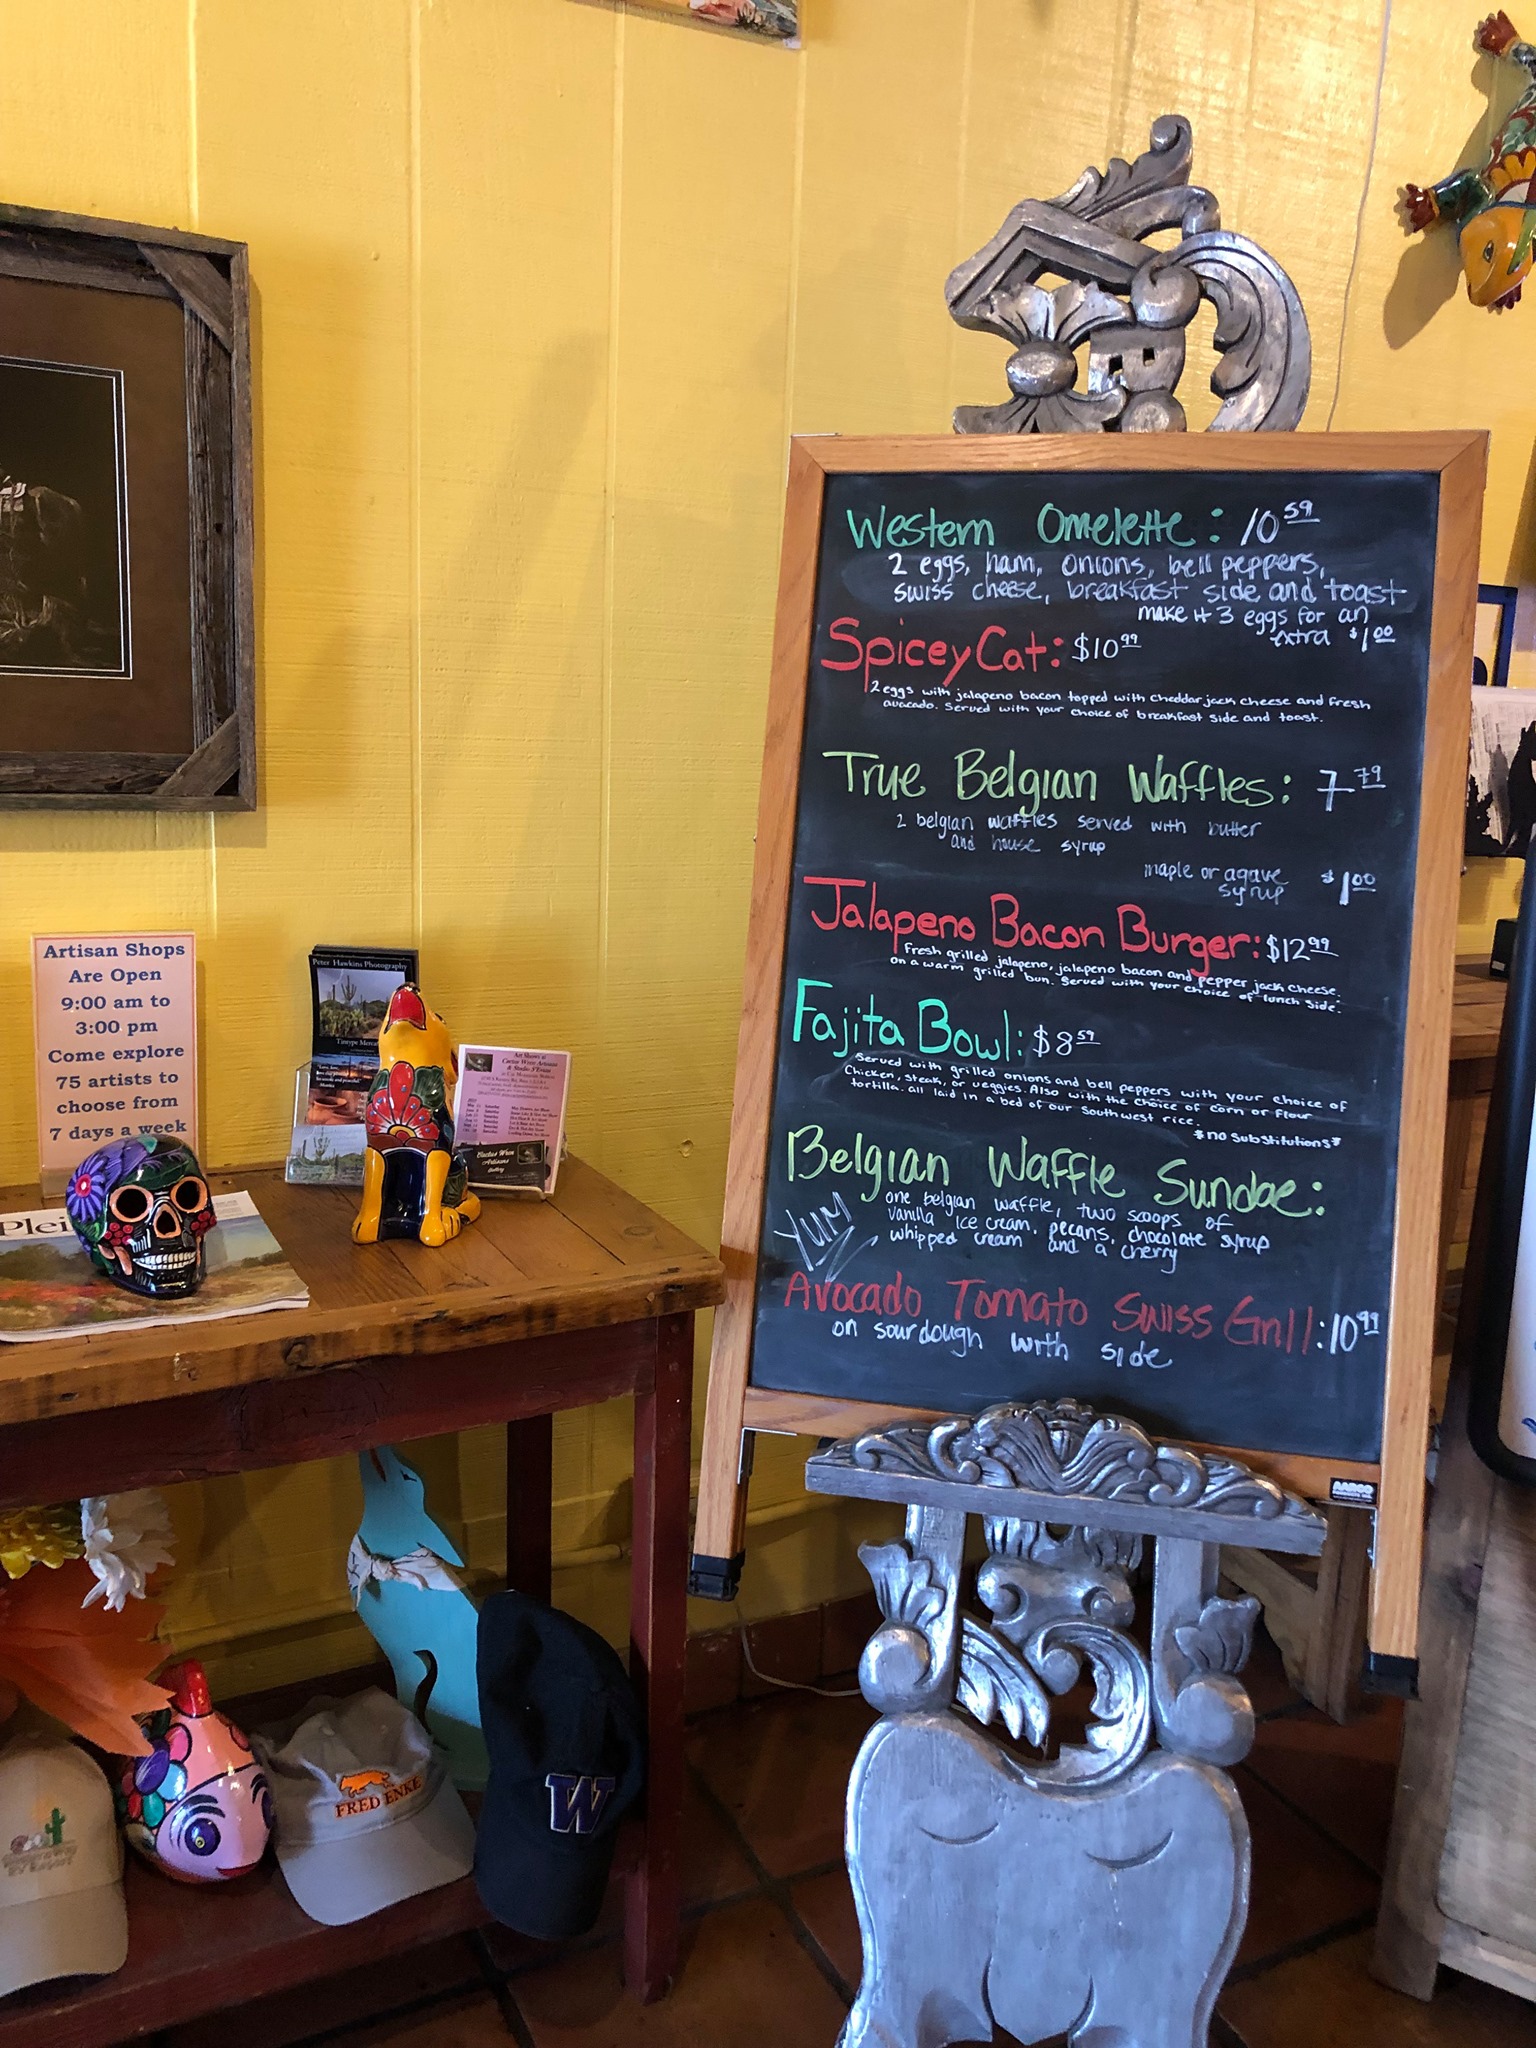 Western Omelette: 10 59
2 eggs, ham, onions, bell peppers,
swiss cheese, breakfast side and toast
make it 3 eggs for an
extra $1 00
Spicey Cat: $10 99
2 eggs with jalapeno bacon topped with cheddar jack cheese and fresh
avacado. Served with your choice of breakfast side and toast.
True Belgian Waffles: 7 79
2 belgian waffles served with butter
and house syrup
maple or agave
syrup $1 00
Jalapeno Bacon Burger: $12 99
Fresh grilled jalapeno, jalapeno bacon and pepper jack cheese.
on a warm grilled bun. Served with your choice of lunch side.
Fajita Bowl: $8 59
Served with grilled onions and bell peppers with your choice of
Chicken, steak, or veggies. Also with the choice of corn or flour
tortilla. all laid in a bed of our Southwest rice.
*no substitutions*
Belgian Waffle Sundae:
one belgian waffle, two scoops of
vanilla ice cream, pecans, chocolate syrup
whipped cream and a cherry
YUM
Avocado Tomato Swiss Grill: 10 99
on sourdough with side
AARCO
Artisan Shops
Are Open
9:00 am to
3:00 pm
Come explore
75 artists to
choose from
7 days a week
Peter Hawkins Photography
Art Shows at
Cactus Wren Artisans
Cactus Wren
Artisans
Gallery
Plei
FRED ENKE
W